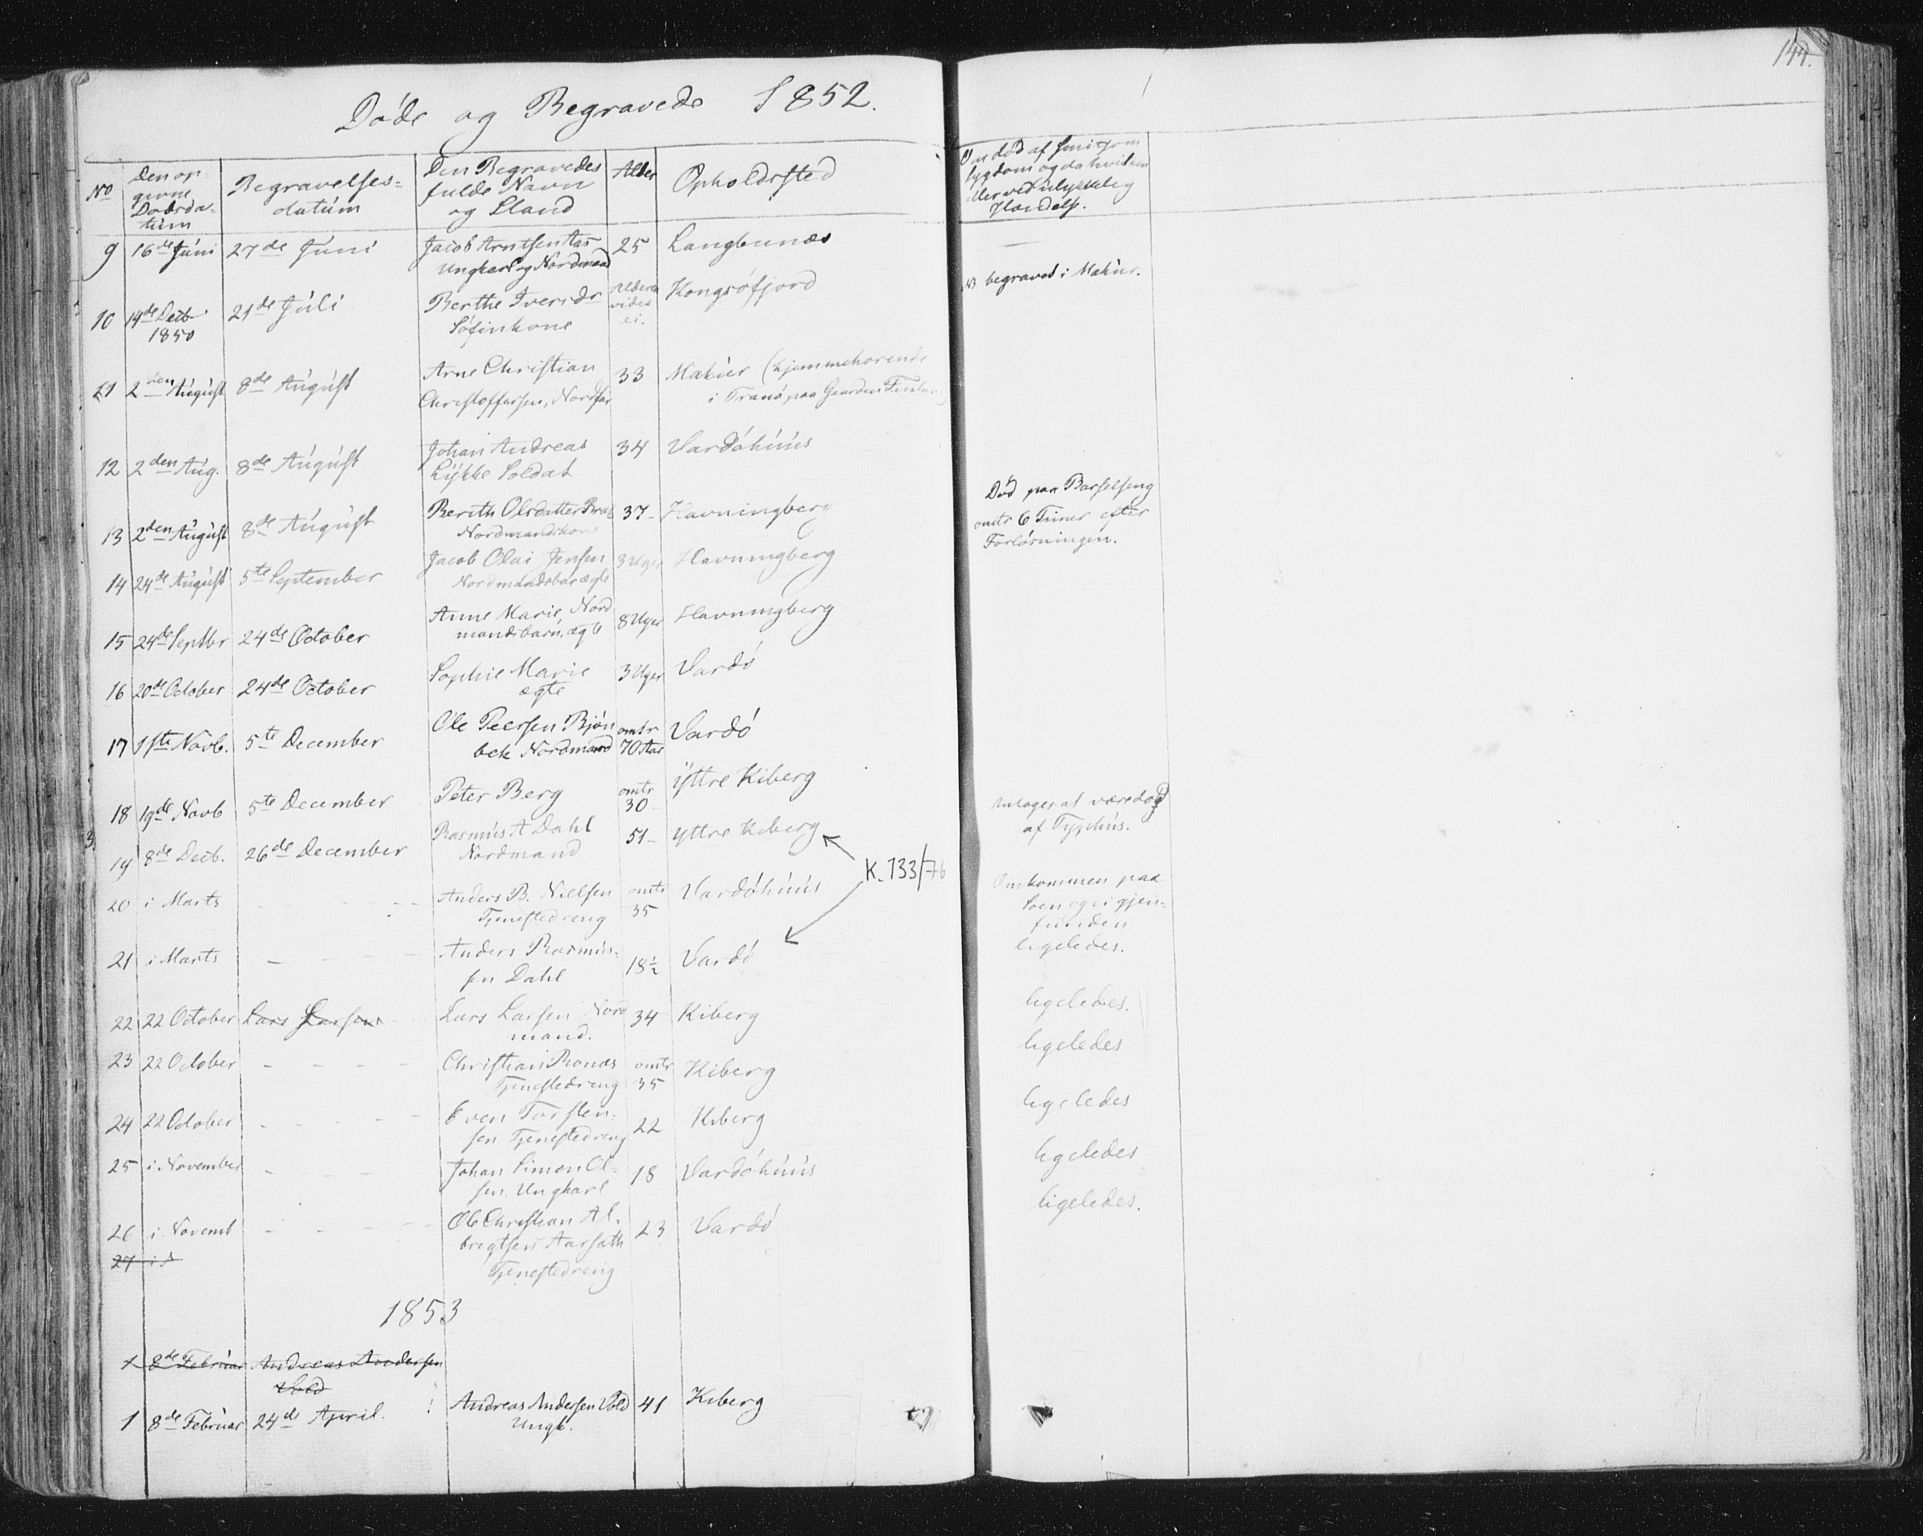 144.
Döde og Begravede 1852.
No
Den op
givne
Dødsda-
tum
Begravelses-
datum
Den Begravedes
fulde Navn
og Stand
Alder
Opholdssted
Om død af smitsom
sygdom og da hvilken
eller ved ulykkelig
Hændelse.
9 16de Juni 27de Juni Jacob Arntsen Aas 25 Langbunæs
Ungkarl og Nordmand
NB begravet i Makur.
10 14de Decb 21de Juli Berthe Iversdr Alderen Kongsøfjord
1850 Søfinkone vides
ei.
11 2den August 8de August Arne Christian 33 Makur (hjemmehørende
Christoffersen, Nordfar i Tranø paa Gaarden
12 2den Aug. 8de August Johan Andreas 34 Vardøhuus
Lykke Soldat
13 2den August 8de August Berith Olsdatter 37- Havningberg
Nordmandskone
Død paa Barselseng
omtr 6 Timer efter
Forløsningen.
14 24de August 5te September Jacob Olai Jensen 3 Uger Havningberg
Nordmandsbarn ægte
15 24de Septbr 24de October Anne Marie, Nord 8 Uger Havningberg
mandsbarn, ægte
16 20de October 24de October Sophie Marie 3 Uger Vardö
ægte
17 1ste Novb. 5te December Ole Peersen Bjøn omtr Vardö
bek Nordmand 70 Aar
18 19de Novb 5te December Peter Berg omtr Yttre Kiberg
30-
Antages at være død
af Typhus.
19 8de Decb. 26de December Rasmus A Dahl 51- Yttre Kiberg
Nordmand
K. 733/76
20 i Marts - - - Anders B. Nielsen omtr Vardøhuus
Tjenestedreng 35
Omkommen paa
Søen og ei gjen-
funden
21 i Marts - - - Anders Rasmus- 18½ Vardö
sen Dahl
ligeledes.
22 22 October Lars Larsen Lars Larsen Nord 34 Kiberg
mand.
ligeledes.
23 22 October - - - Christian Ronæs omtr Kiberg
Tjenestedreng 35
ligeledes
24 22 October - - - Even Torsten- 22 Kiberg
sen. Tjenestedreng
ligeledes
25 i November - - Johan Simon Ol- 18 Vardøhuus
sen. Ungkarl
ligeledes
26 i Novemb - - - Ole Christian Al- 23 Vardö
bregtsen Aarsæth
Tjenestedreng
ligeledes.
27 i
1853
1 8de Februar Andreas Andersen
Vold
1 8de Februar 24de April. Andreas Andersen Vold 41 Kiberg
Ungk.